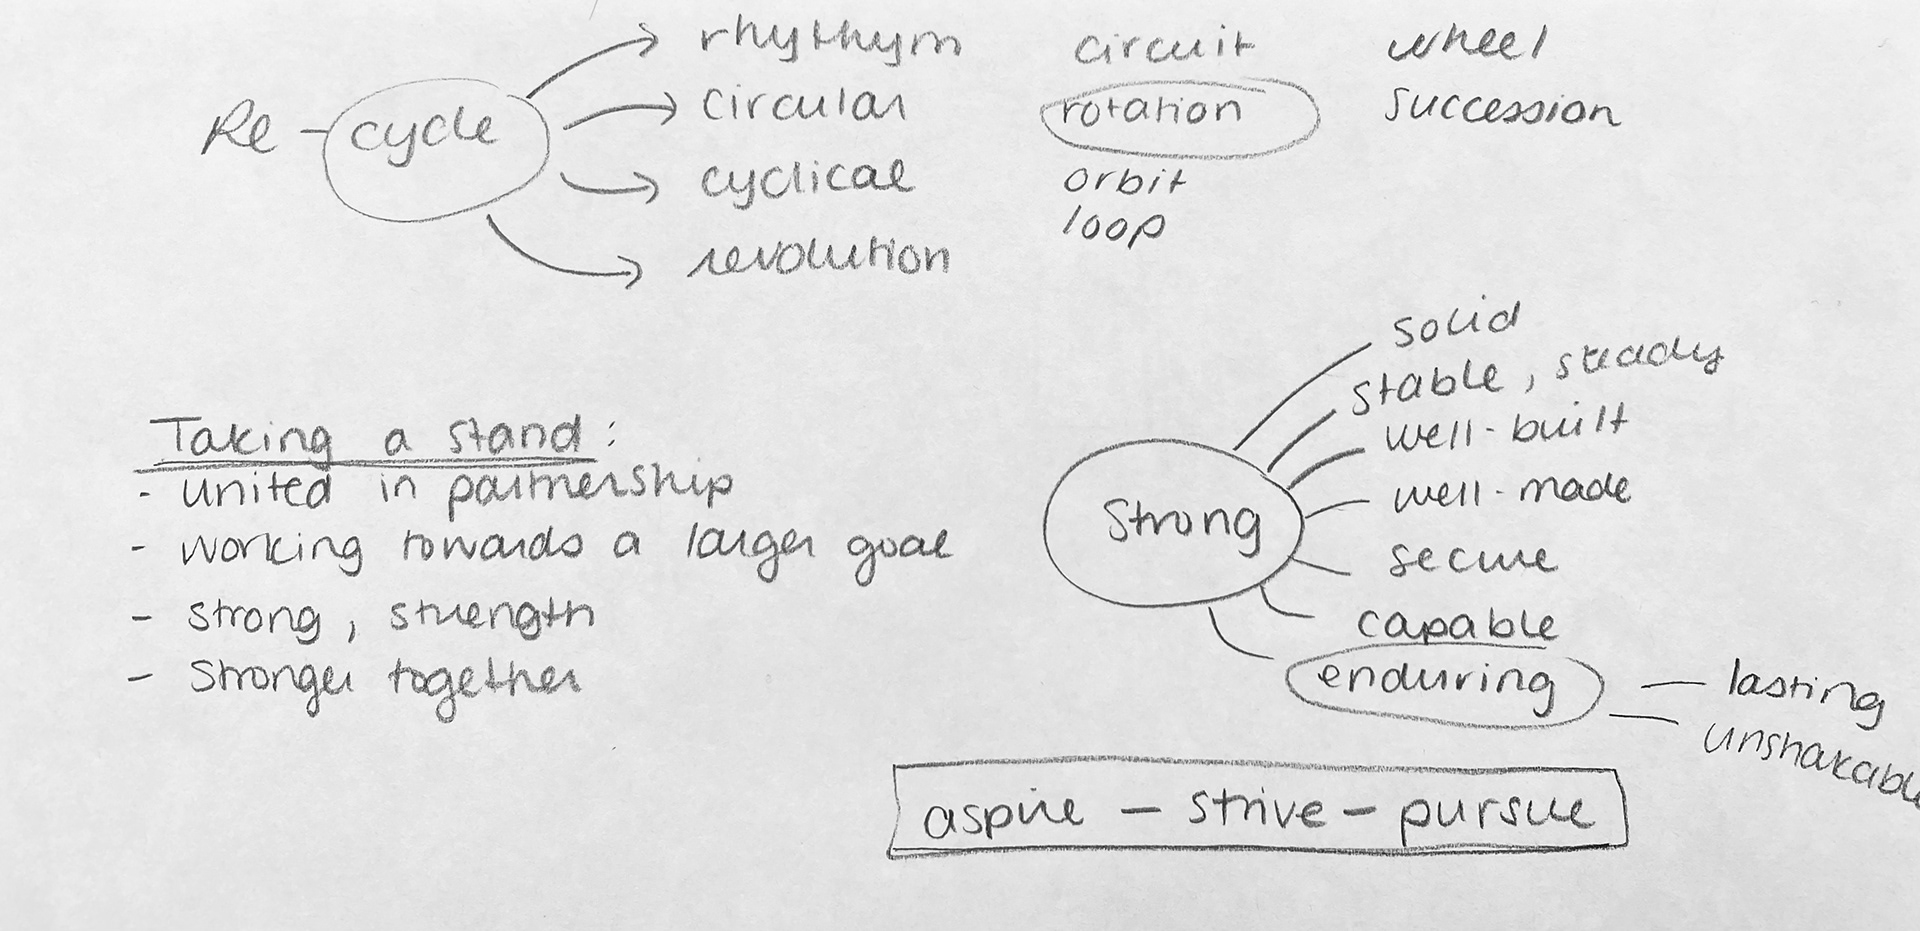 Re - cycle
rhythym
circular
cyclical
revolution
circuit
rotation
orbit
loop
wheel
succession
Taking a stand:
- united in partnership
- working towards a larger goal
- strong, strength
- Stronger together
Strong
solid
stable, steady
well-built
well-made
secure
capable
enduring
lasting
unshakable
aspire - strive - pursue